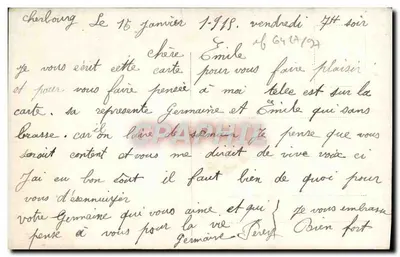 Cherbourg Le 15 Janvier 1915 vendredi 7H soir
chère Emile
Je vous écrit cette carte pour vous faire plaisir
et pour vous faire pensée à moi telle est sur la
carte. sa represente Germaine et Emile qui sans
brasse. car on laire se pense que vous
serait content et vous me dirait de vive voix ci
J'ai eu bon tout il faut bien de quoi pour
vous d'esennuizer
votre Germaine qui vous aime et qui Je vous embrasse
pense à vous pour la vie Bien fort
Germaine